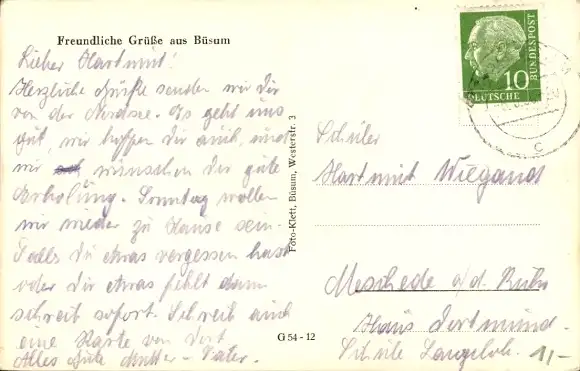 Freundliche Grüße aus Büsum
Lieber Hartmut!
Herzliche Grüße senden wir Dir
von der Nordsee. Es geht uns
gut, wir hoffen Dir auch, und
wir wünschen Dir gute
Erholung. Sonntag wollen
wir wieder zu Hause sein.
Falls Du etwas vergessen hast
oder Dir etwas fehlt dann
schreib sofort. Schreib auch
eine Karte von dort
Alles Gute Mutter - Vater.
Foto-Klett, Büsum, Westerstr. 3
G 54 - 12
10
DEUTSCHE
BUNDESPOST
c
Schüler
Hartmut Wiegand
Meschede a/d. Ruhr
Haus Dortmund
Schule Langeloh.
1,-